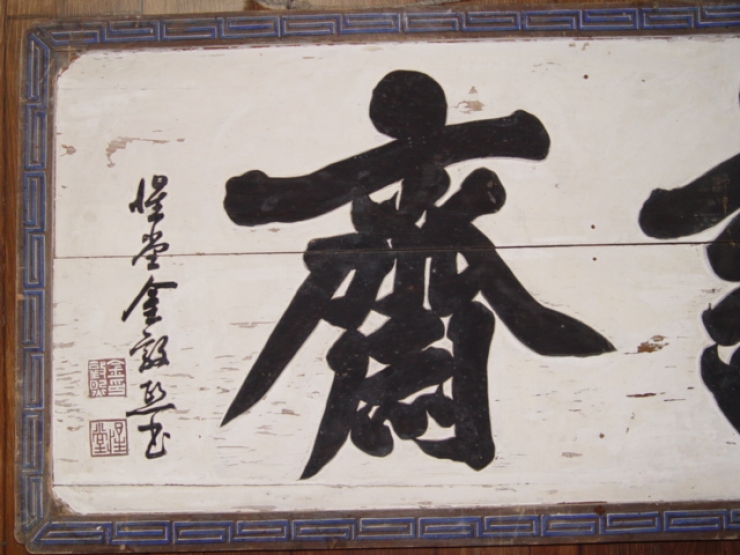 齋
惺堂金敦熙書